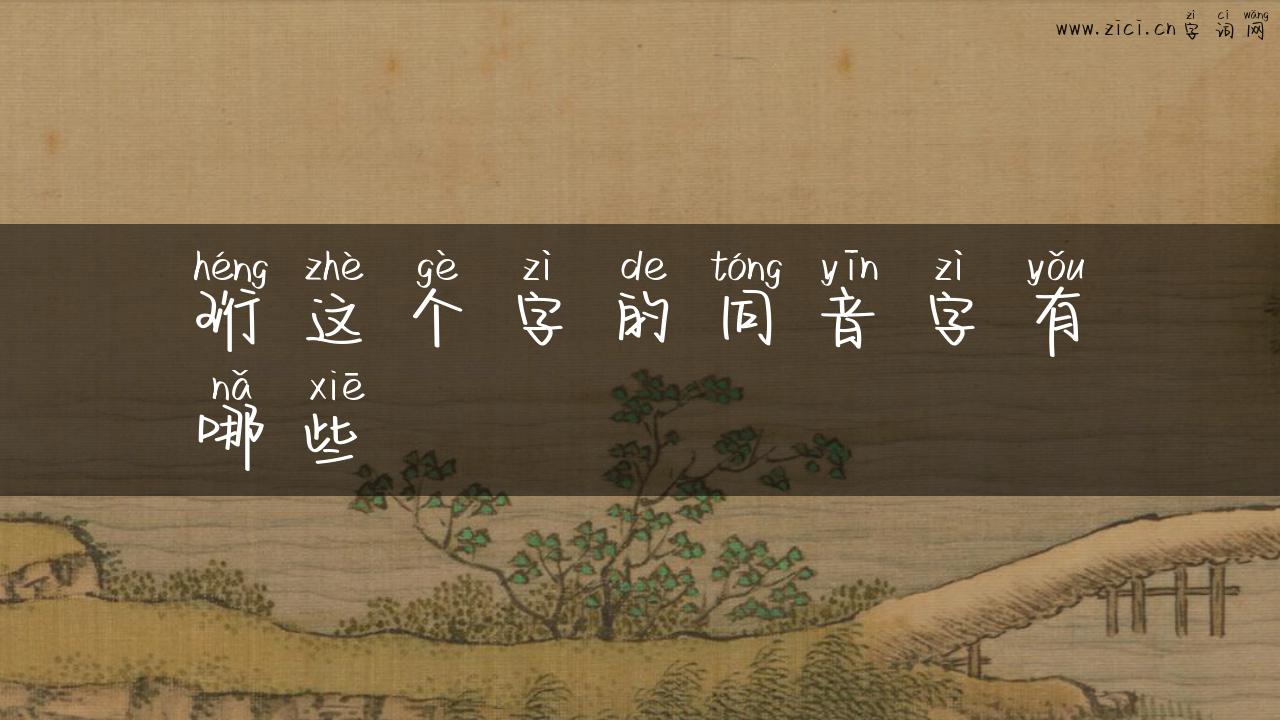 www.zici.cn zì cí wǎng
字词网
héng zhè gè zì de tóng yīn zì yǒu
珩这个字的同音字有
nǎ xiē
哪些